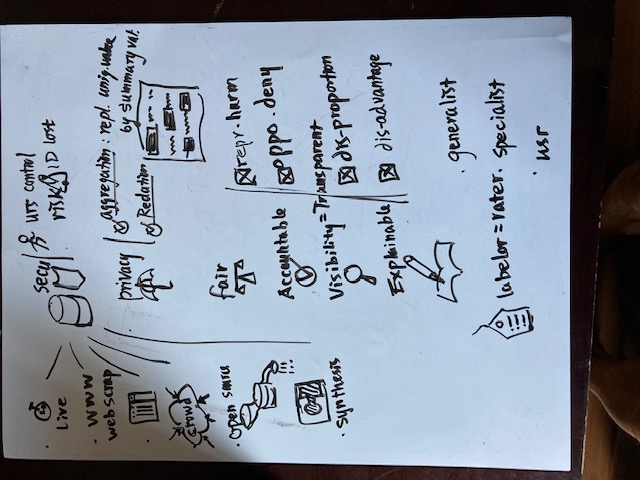 live
www
webscrap
crowd
open smru
synthesis
secu
urs control
risk ID lost
privacy
aggregation: repl. uniq. value
by summary val.
Redation
fair
Accountable
Visibility = Transparent
Explainable
repr. harm
oppo. deny
dis-proportion
dis-advantage
labelor = rater.
generalist
specialist
usr